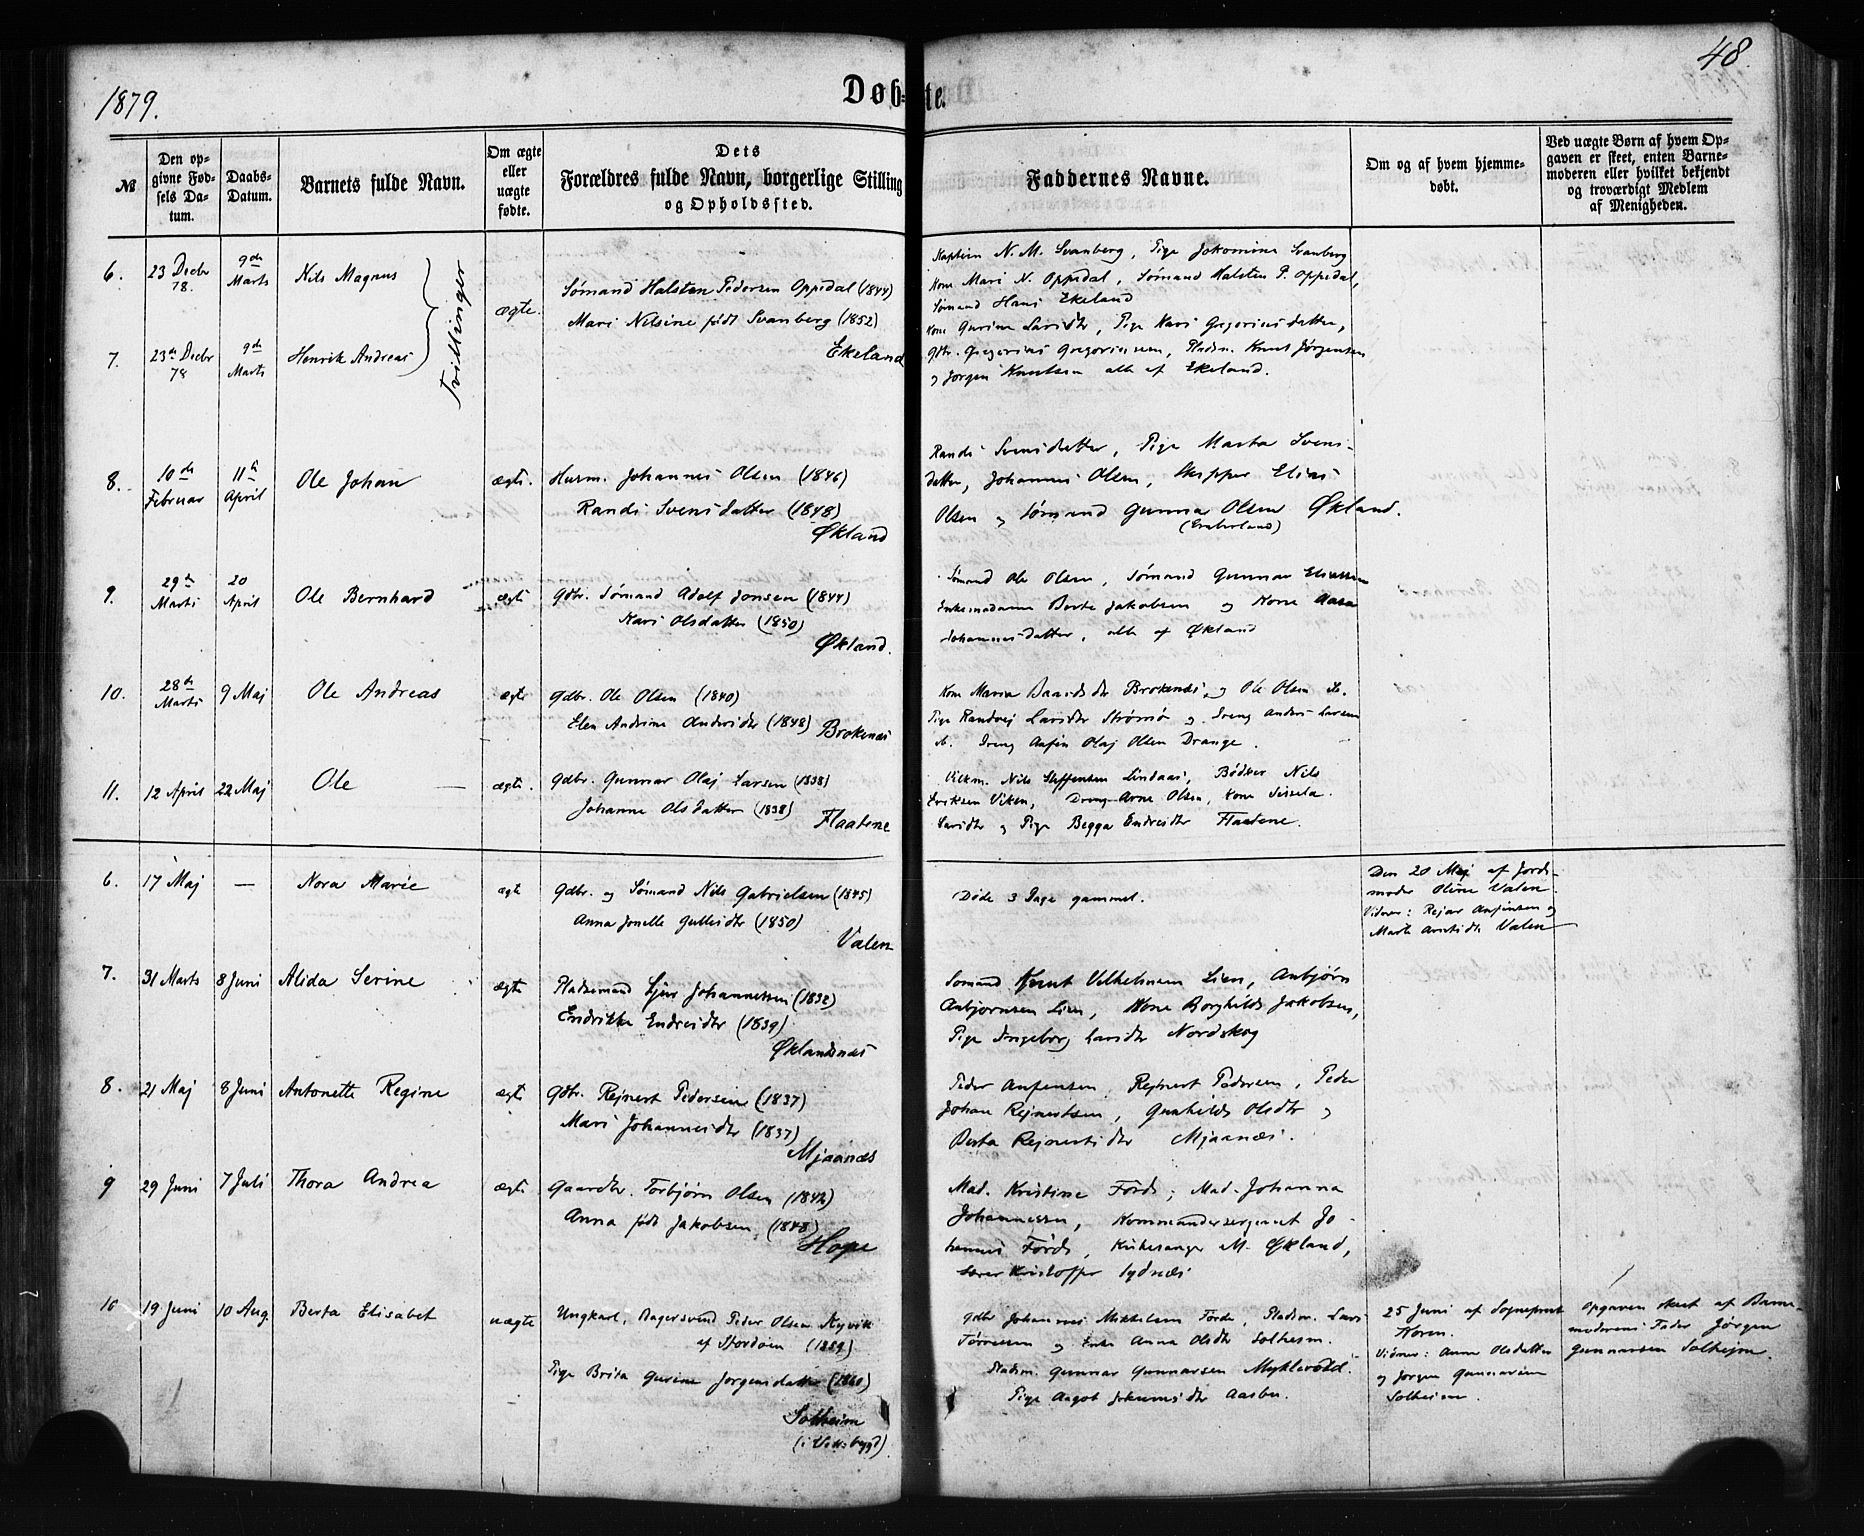 1879.
Døb-te.
48.
№
Den opgivne Fødsels Datum.
Daabs-Datum.
Barnets fulde Navn.
Om ægte eller uægte fødte.
Dets Forældres fulde Navn, borgerlige Stilling og Opholdssted.
Faddernes Navne.
Om og af hvem hjemmedøbt.
Ved uægte Børn af hvem Opgaven er skeet, enten Barnemoderen eller hvilket bekjendt og troværdigt Medlem af Menigheden.
6.
23 Decbr 78.
9de Marts
Nils Magnus
Tvillinger
ægte.
Sømand Halsten Pedersen Oppedal (1844)
Mari Nilsine født Svanberg (1852)
Ekeland
Kaptein N. M. Svanberg, Pige Jakomine Svanberg
Kone Mari N. Oppedal, Sømand Halsten P. Oppedal,
Sømand Hans Ekeland
7.
23de Decbr 78
9de Marts
Henrik Andreas
Kone Gurine Larsdtr, Pige Kari Gregoriusdatter,
Gdbr. Gregorius Gregoriussen, Pladsm. Knut Jørgensen
og Jørgen Knutsen alle af Ekeland.
8.
10de Februar
11te April
Ole Johan
ægte.
Husm. Johannes Olsen (1846)
Randi Svensdatter (1848)
Økland
Randi Svensdatter, Pige Marta Svens-
datter, Johannes Olsen, Skipper Elias
Olsen og Sømand Gunnar Olsen Økland.
9.
29de Marts
20 April
Ole Bernhard
ægte
Gdbr. Sømand Adolf Jonsen (1844)
Kari Olsdatter (1850)
Økland.
Sømand Ole Olsen, Sømand Gunnar Eliassen
Enkemadame Berte Jakobsen og Kone Aasa
Johannesdatter, alle af Økland
10.
28de Marts
9 Maj
Ole Andreas
ægte
Gdbr. Ole Olsen (1840)
Elen Andrine Andersdtr (1848) Brokenæs
Kone Maria Baardsdtr Brokenæs, og Ole Olsen
Pige Randvej Larsdtr Strømø og Dreng Anders Larsen
Dreng Anfin Olaj Olsen Drange.
11.
12 April
22 Maj
Ole —
ægte.
Gdbr. Gunnar Olaj Larsen (1838)
Johanne Olsdatter (1838)
Flaatene
Nils Steffensen Lindaas, Bødker Nils
Eriksen Viken, Dreng Arne Olsen, Kone Sissela
Larsdtr og Pige Begga Endresdtr Flaatene.
6.
17 Maj
—
Nora Marie
ægte
Gdbr. og Sømand Nils Gabrielsen (1845)
Anna Jonette (1850)
Valen
Døde 3 Dage gammel.
Den 20 Maj af Jord-
moder Oline Valen.
Vidner: Rejar Anfinsen og
Marta Valen
7.
31 Marts
8 Juni
Alida Serine
ægte
Pladsemand Sjur Johannessen (1832)
Endrikke Endresdtr (1839)
Øklandsnæs
Sømand Knut Vilhelmsen Lien, Anbjørn
Anbjørnsen Lien, Kone Borghilde Jakobsen,
Pige Ingeborg Larsdtr Nordskog
8.
21 Maj
8 Juni
Antonette Regine
ægte
Gdbr. Rejnert Pedersen (1837)
Mari Johannesdtr (1837)
Mjaanæs
Peder Anfinsen, Rejnert Pedersen, Peder
Johan Rejnertsen, Gunhilde Olsdtr og
Berta Rejnertsdtr Mjaanæs.
9
29 Juni
7 Juli
Thora Andrea
ægte
Gaardbr. Torbjørn Olsen (1842)
Anna født Jakobsen, (1848)
Hope
Mad. Kristine Förde, Mad. Johanna
Johannessen, Kommandersergeant Jo-
hannes Förde, Kirkesanger M. Økland,
Lærer Kristoffer Sydnæs
10
19 Juni
10 Aug.
Berta Elisabet
uægte
Ungkarl, Bagersvend Peder Olsen Kyvik
af Stordøen
Pige Brita Gurine Jørgensdatter (1860)
Solheim
(i Vatsbygd)
Gdbr Johannes Mikkelsen Førde, Pladsm. Lars
Tørresen og Enke Anna Olsdtr Solheim.
Pladsm. Gunnar Gunnarsen Myklevold.
Pige Aagot Aasbø.
25 Juni af Sogneprest
Horn.
Vidner: Anna Olsdatter
og Jørgen Gunnarsen
Solheim.
Opgaven skeet af Barne-
moderens Fader Jørgen
Gunnarsen Solheim.